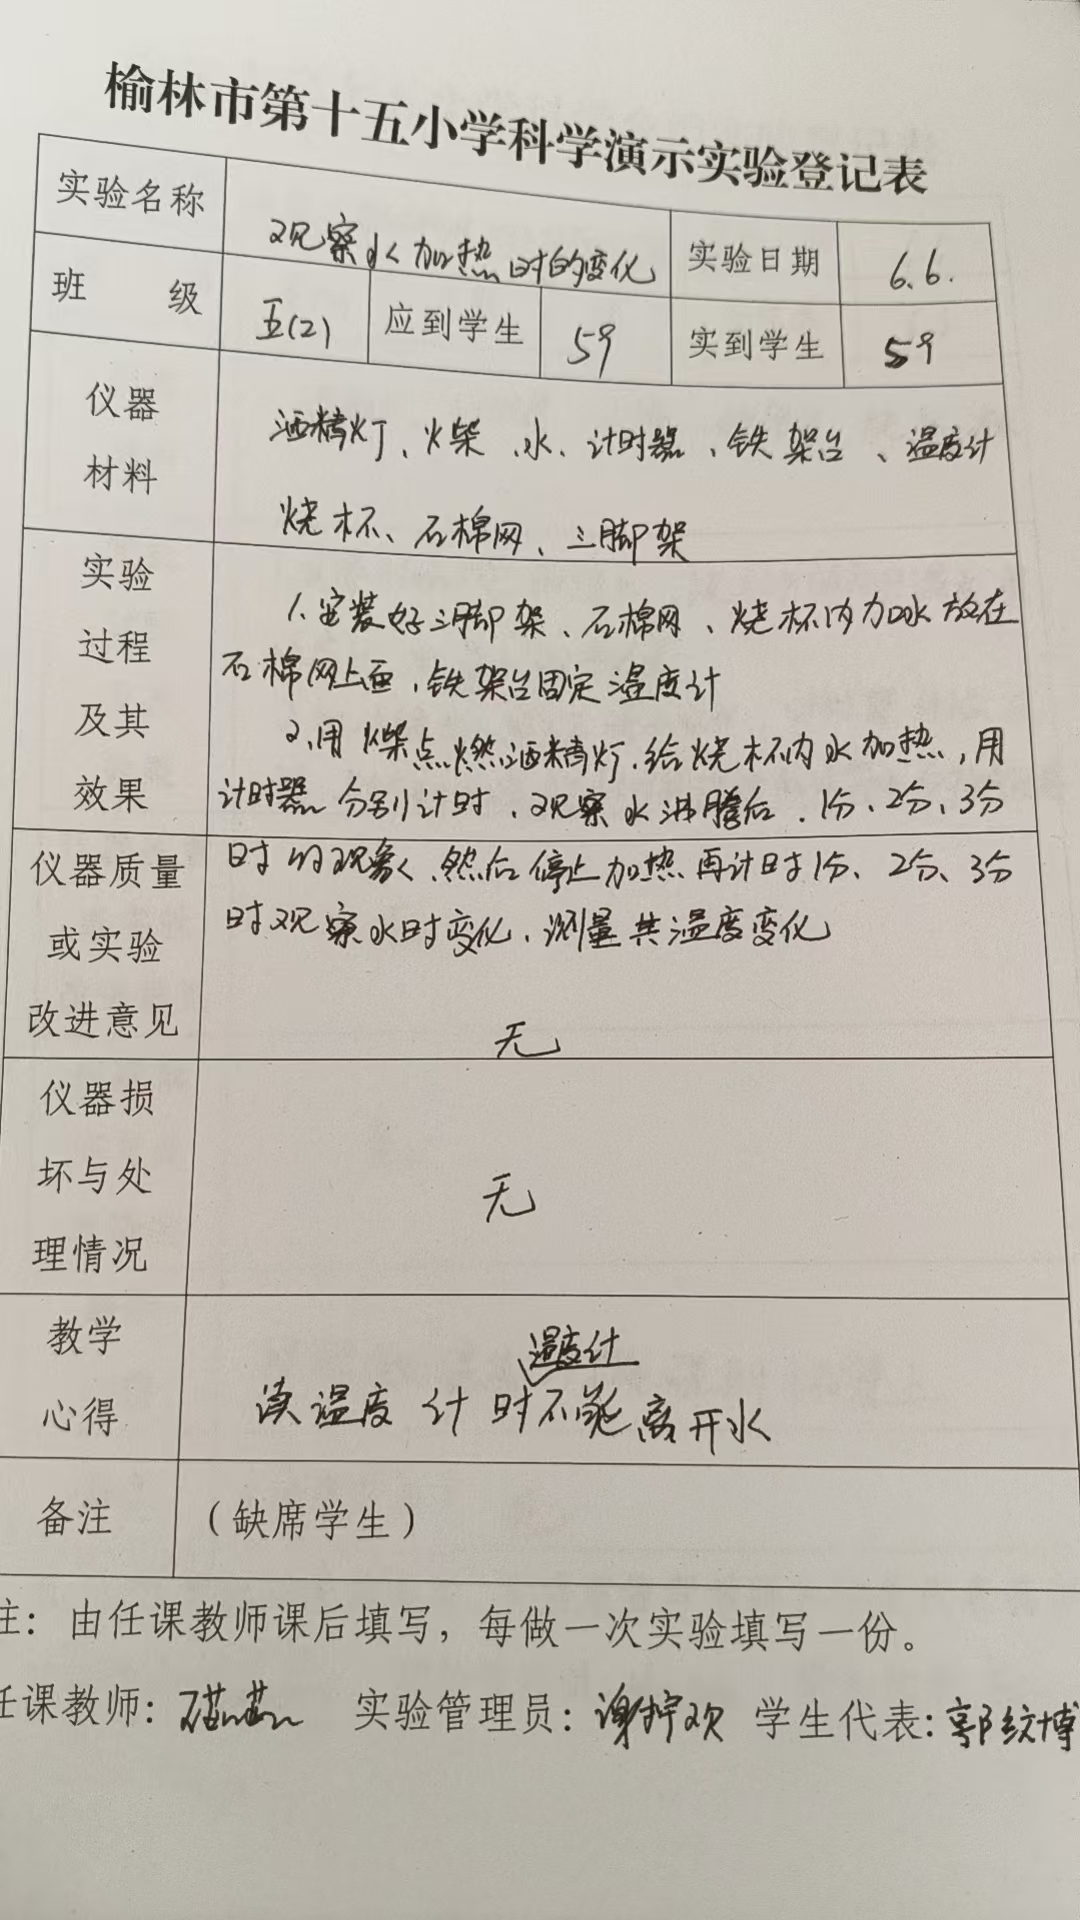 榆林市第十五小学科学演示实验登记表
实验名称 观察水加热时的变化 实验日期 6.6.
班 级 五(2) 应到学生 59 实到学生 59
仪器
材料
酒精灯、火柴、水、计时器、铁架台、温度计
烧杯、石棉网、三脚架
实验
过程
及其
效果
1.安装好三脚架、石棉网、烧杯内加水放在
石棉网上面,铁架台固定温度计
2.用火柴点燃酒精灯.给烧杯内水加热,用
计时器分别计时,观察水沸腾后.1分、2分、3分
仪器质量
或实验
改进意见
时的现象、然后停止加热再计时1分、2分、3分
时观察水时变化,测量其温度变化
无
仪器损
坏与处
理情况
无
教学
心得
温度计
读温度计时不能离开水
备注 (缺席学生)
注:由任课教师课后填写,每做一次实验填写一份。
任课教师: 实验管理员: 谢拧欢 学生代表: 郭纹博